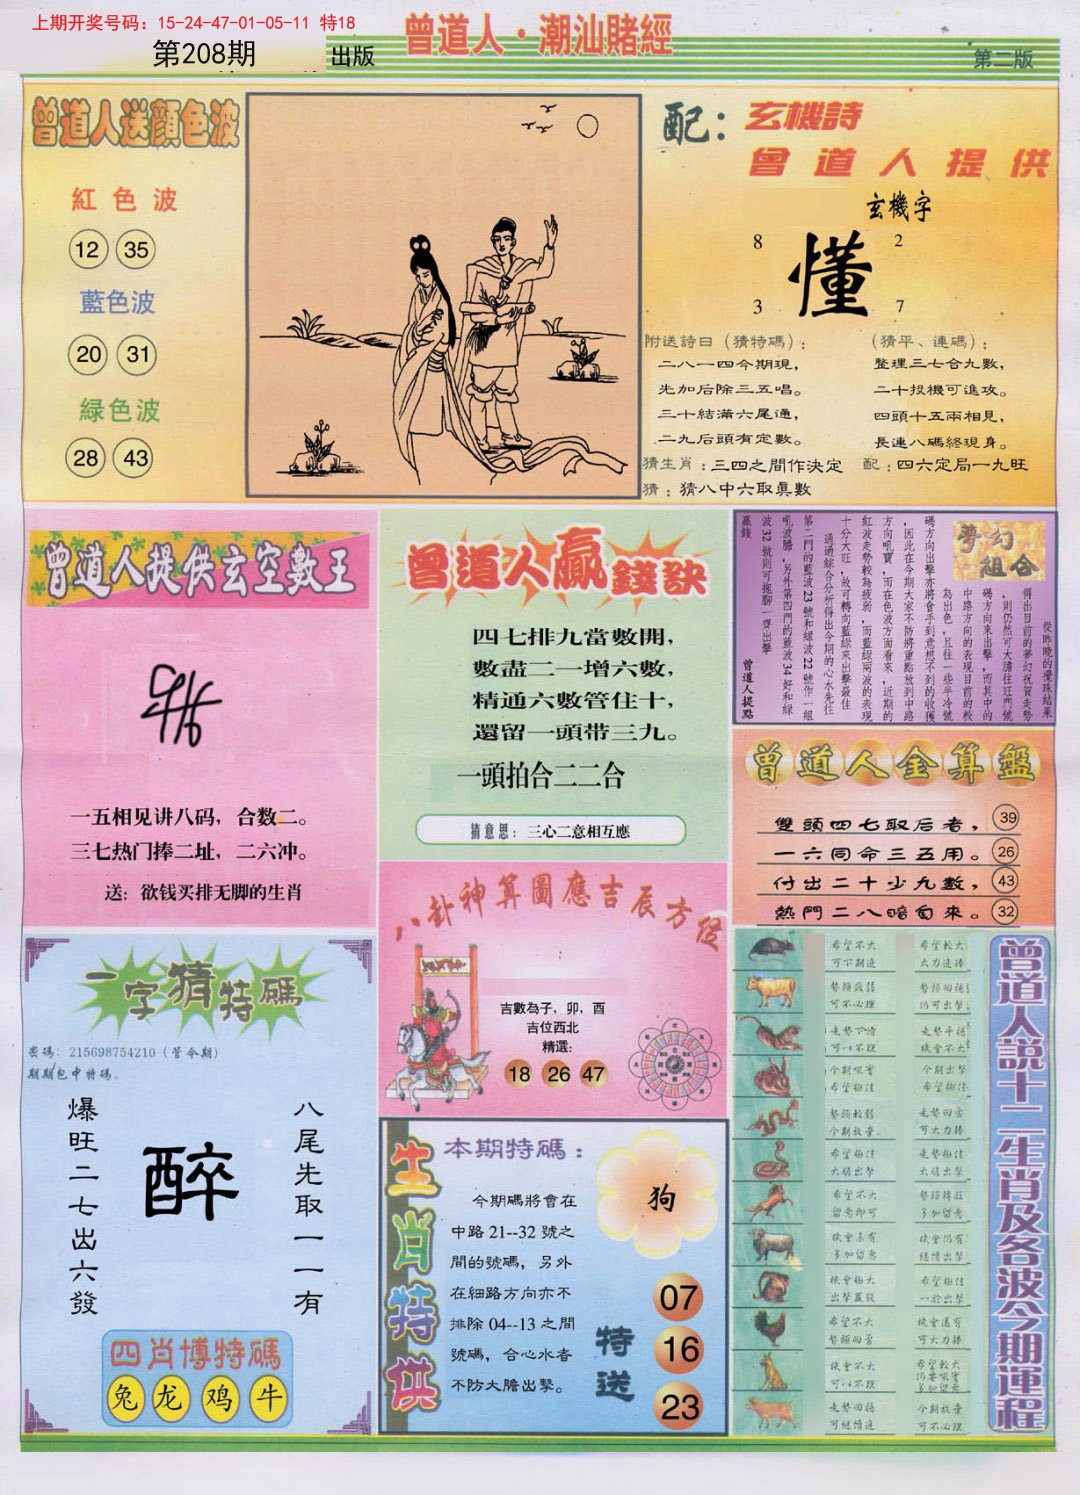 上期开奖号码：15-24-47-01-05-11 特18
第208期
出版
曾道人·潮汕賭經
第二版
曾道人送顏色波
紅色波
12 35
藍色波
20 31
緑色波
28 43
配：玄機詩
曾道人提供
玄機字
8 2
懂
3 7
附送詩曰（猜特碼）：
二八一四今期現，
先加后除三五唱。
三十結滿六尾通，
二九后頭有定數。
（猜平、連碼）：
整理三七合九數，
二十投機可進攻。
四頭十五兩相見，
長連八碼終現身。
猜生肖：三四之間作決定
配：四六定局一九旺
猜：猜八中六取真數
曾道人提供玄空數王
一五相见讲八码，合数二。
三七热门捧二址，二六冲。
送：欲钱买排无脚的生肖
曾道人贏錢訣
四七排九當數開，
數盡二一增六數，
精通六數管住十，
還留一頭带三九。
一頭拍合二二合
猜意思：三心二意相互應
夢幻組合
從昨晚的攪珠結果
得出目前的夢幻祝賀走勢
，則仍然可大膽往旺門號
碼方向來出擊，而其中的
中路方向的表現目前的較
為出色，且往一些半冷號
碼方向出擊亦將會手到意想不到的收獲
，因此在今期大家不防將重點放到中路
方向吼寶，而在色波方面看來，近期的
紅波走勢較為疲弱，而藍緑兩波的表現
十分大旺，故可轉向藍緑來出擊最佳
通過綜合分析得出今期的心水先往
第二門的藍波23號和緑波22號作一組
吼波膽，另外第四門的藍波34好和緑
波32號則可拖腳一齊出擊
贏錢
曾道人提點
曾道人金算盤
雙頭四七取后者，39
一六同命三五用。26
付出二十少九數，43
熱門二八暗自來。32
八卦神算圖應吉辰方位
吉數為子，卯，酉
吉位西北
精選：
18 26 47
一字猜特碼
密碼：215698754210（管今期）
期期包中特碼。
爆旺二七出六發
醉
八尾先取一一有
四肖博特碼
兔 龙 鸡 牛
生肖特供
本期特碼：
今期碼將會在
中路21--32號之
間的號碼，另外
在細路方向亦不
排除04--13之間
號碼，合心水者
不防大膽出擊。
狗
特送
07
16
23
曾道人説十二生肖及各波今期運程
希望不大
可下期進
希望較大
大力追捧
勢頭疲弱
可不必理
勢頭回穩
仍可出擊
走勢下滑
可以不理
走勢平穩
機會不大
今期吼實
希望極佳
今期出擊
希望極佳
勢頭較弱
今期放棄
走勢回苦
可大力捧
希望極佳
大膽出擊
走勢極佳
大膽出擊
希望不大
留意即可
勢頭轉旺
多加留意
機會未有
多加留意
機會仍有
繼續出擊
機會極大
出擊贏錢
希望極佳
一於出擊
希望不大
勢頭回苦
機會還有
可大力捧
機會不大
可以不理
希望較大
仍要吼實
多加留意
走勢回穩
可繼續追
今期放棄
可不必理